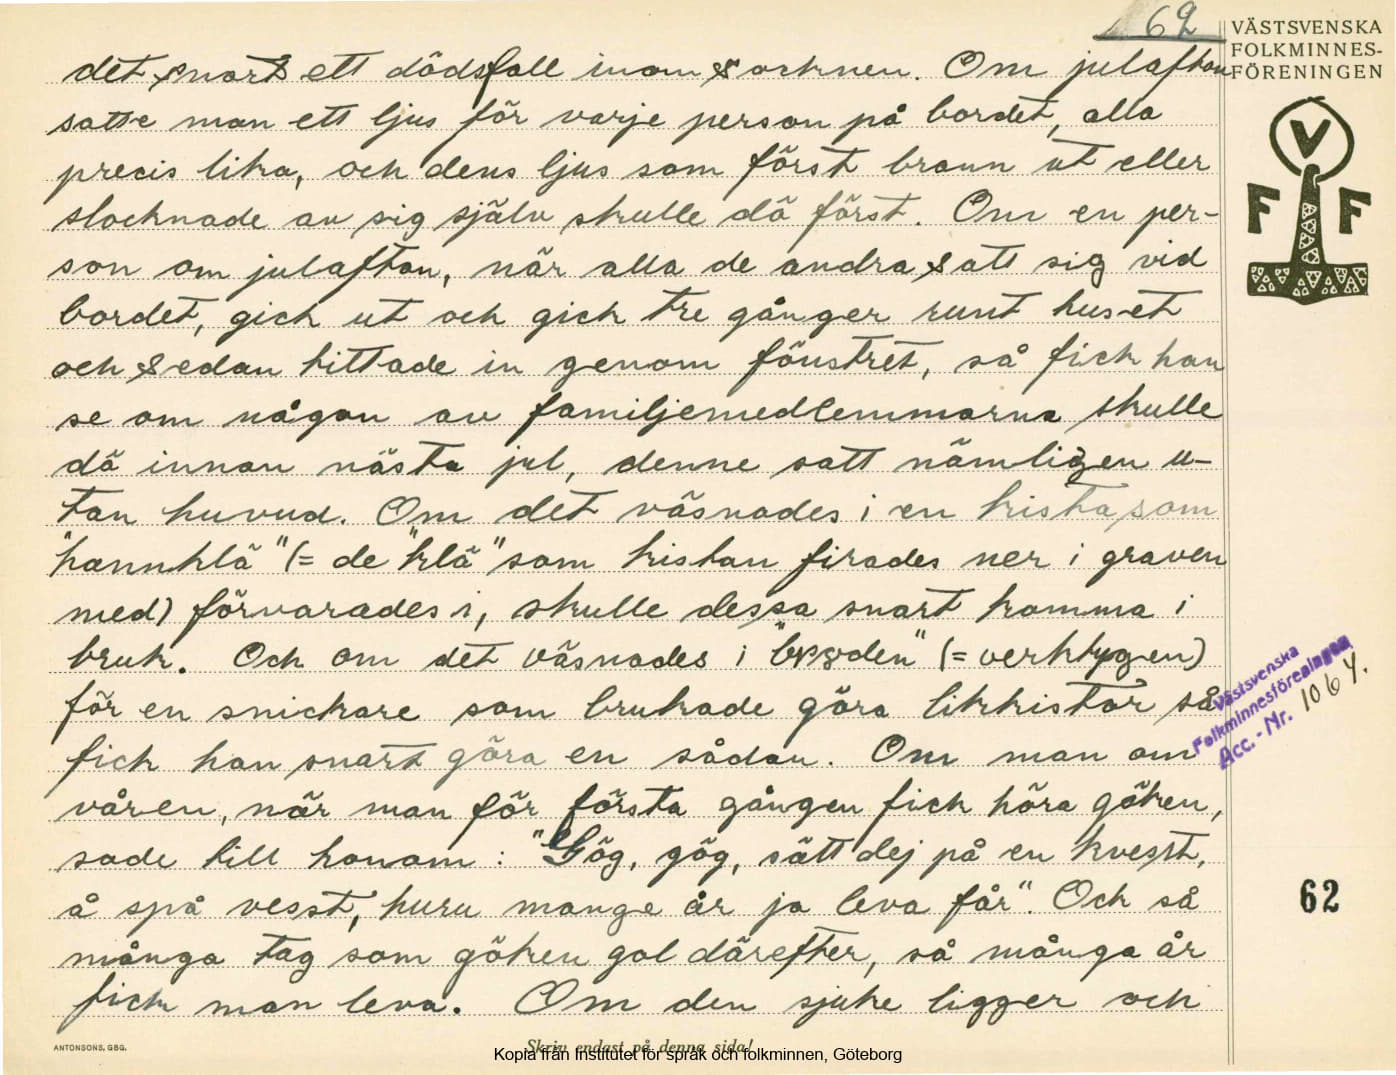 62
VÄSTSVENSKA
FOLKMINNES-
FÖRENINGEN
det snart ett dödsfall inom socknen. Om julafton
satte man ett ljus för varje person på bordet, alla
precis lika, och dens ljus som först brann ut eller
slocknade av sig själv skulle dö först. Om en per-
son om julafton, när alla de andra satt sig vid
bordet, gick ut och gick tre gånger runt huset
och sedan tittade in genom fönstret, så fick han
se om någon av familjemedlemmarna skulle
dö innan nästa jul, denne satt nämligen u-
tan huvud. Om det väsnades i en kista som
"hannklä" (= de "klä" som kistan firades ner i graven
med) förvarades i, skulle dessa snart komma i
bruk. Och om det väsnades i (= verktygen)
för en snickare som brukade göra likkistor så
fick han snart göra en sådan. Om man om
våren, när man för första gången fick höra göken,
sade till honom: "Gög, gög, sätt dej på en kvesst,
å spå vesst, huru mange år ja leva får". Och så
många tag som göken gol därefter, så många år
fick man leva. Om den sjuke ligger och
V
F F
Västsvenska
Folkminnesföreningen
Acc. - Nr. 1064.
62
ANTONSONS, GBG.
Skriv endast på denna sida!
Kopia från Institutet för språk och folkminnen, Göteborg